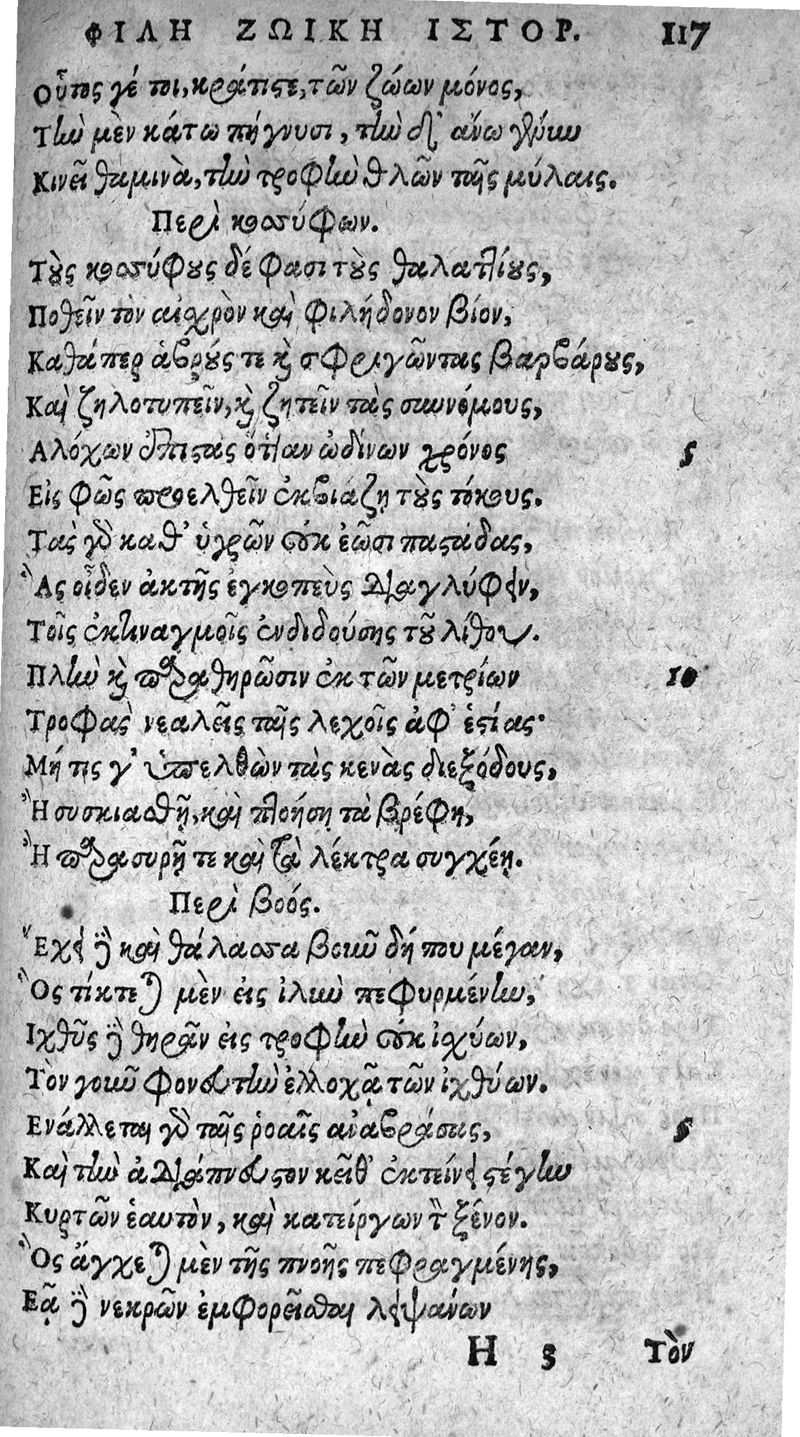 ΦΙΛΗ ΖΩΙΚΗ ΙΣΤΟΡ. 117
Οὗτος γέ τοι, κράτιστε, τῶν ζώων μόνος,
Τὴν μὲν κάτω πήγνυσι, τὴν δ' ἄνω γένυν
Κινεῖ θαμινὰ, τὴν τροφὴν θλῶν ταῖς μύλαις.
Περὶ κοσσύφων.
Τοὺς κοσσύφους δέ φασι τοὺς θαλαττίους,
Ποθεῖν τὸν αἰσχρὸν καὶ φιλήδονον βίον,
Καθάπερ ἁβρούς τε καὶ σφριγῶντας βαρβάρους,
Καὶ ζηλοτυπεῖν, καὶ ζητεῖν τὰς συννόμους,
Αλόχων ἐπιστὰς ὅταν ὠδίνων χρόνος 5
Εἰς φῶς προελθεῖν ἐκβιάζῃ τοὺς τόκους.
Τὰς γὰρ καθ' ὑγρῶν οὐκ ἐῶσι παστάδας,
Ἃς οἶδεν ἀκτῆς ἐγκοπεὺς διαγλύφειν,
Τοῖς ἐκτιναγμοῖς ἐνδιδούσης τοῦ λίθου.
Πλὴν καὶ παραθηρῶσιν ἐκ τῶν μετρίων 10
Τροφὰς νεαλεῖς ταῖς λεχοῖς ἀφ' ἑστίας·
Μή τις γ' ὑπελθὼν τὰς κενὰς διεξόδους,
Ἢ συσκιασθῇ, καὶ πτοήσῃ τὰ βρέφη,
Ἢ παρασυρῇ τε καὶ τὰ λέκτρα συγχέῃ.
Περὶ βοός.
Ἔχει δὲ καὶ θάλασσα βοῦν δή που μέγαν,
Ὃς τίκτεται μὲν εἰς ἰλὺν πεφυρμένην,
Ιχθῦς δὲ θηρᾶν εἰς τροφὴν οὐκ ἰσχύων,
Τὸν γοῦν φονευτὴν ἐλλοχᾷ τῶν ἰχθύων.
Ενάλλεται γὰρ ταῖς ῥοαῖς ἀναβράσας, 5
Καὶ τὴν ἀδιάπνευστον κεῖθ' ἐκτείνει στέγην
Κυρτῶν ἑαυτὸν, καὶ κατείργων τὸν ξένον.
Ὃς ἄγχεται μὲν τῆς πνοῆς πεφραγμένης,
Εᾷ δὲ νεκρῶν ἐμφορεῖσθαι λειψάνων
Η 5 Τὸν